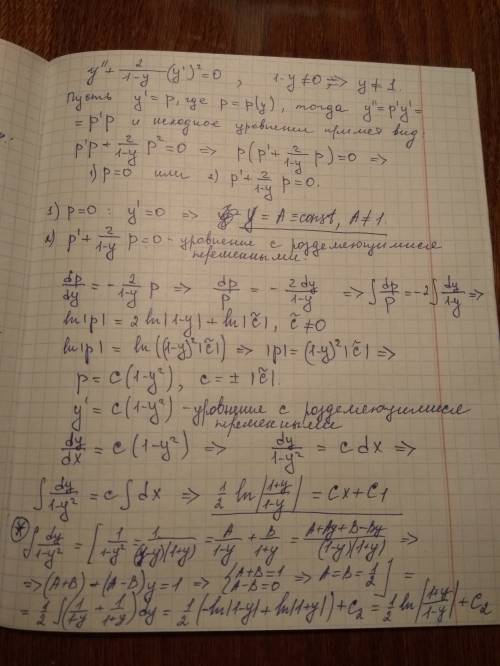 y'' + 2/(1-y) (y')² = 0 , 1-y ≠ 0 => y ≠ 1.
Пусть y' = p, где p = p(y), тогда y'' = p'y' =
= p'p и исходное уравнение примет вид:
p'p + 2/(1-y) p² = 0 => p(p' + 2/(1-y) p) = 0 =>
1) p = 0 или 2) p' + 2/(1-y) p = 0.
1) p = 0 : y' = 0 => y = A = const, A ≠ 1.
2) p' + 2/(1-y) p = 0 - уравнение с разделяющимися
переменными.
dp/dy = - 2/(1-y) p => dp/p = - 2dy/(1-y) => ∫ dp/p = -2 ∫ dy/(1-y) =>
ln|p| = 2 ln|1-y| + ln|c̃|, c̃ ≠ 0
ln|p| = ln((1-y)²|c̃|) => |p| = (1-y)²|c̃| =>
p = c(1-y²), c = ± |c̃|.
y' = c(1-y²) - уравнение с разделяющимися
переменными
dy/dx = c(1-y²) => dy/(1-y²) = c dx =>
∫ dy/(1-y²) = c ∫ dx => 1/2 ln|(1+y)/(1-y)| = Cx + C1
* ∫ dy/(1-y²) = [ 1/(1-y²) = 1/((1-y)(1+y)) = A/(1-y) + B/(1+y) = (A+Ay+B-By)/((1-y)(1+y)) =>
=> (A+B) + (A-B)y = 1 => { A+B=1 A-B=0 => A=B=1/2 ] =
= 1/2 ∫ (1/(1-y) + 1/(1+y)) dy = 1/2 (-ln|1-y| + ln|1+y|) + C2 = 1/2 ln|(1+y)/(1-y)| + C2